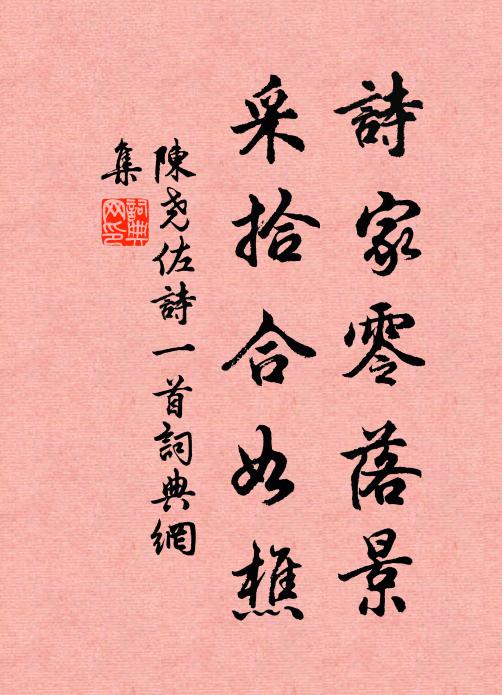 詩家零落景
采拾合如樵
陳堯佐詩一首詞典網
集
詞典
网印